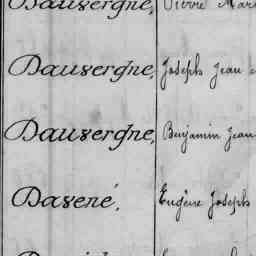 Dauvergne, Pierre Mar
Dauvergne, Joseph Jean
Dauvergne, Benjamin Jean
Davené, Eugène Joseph